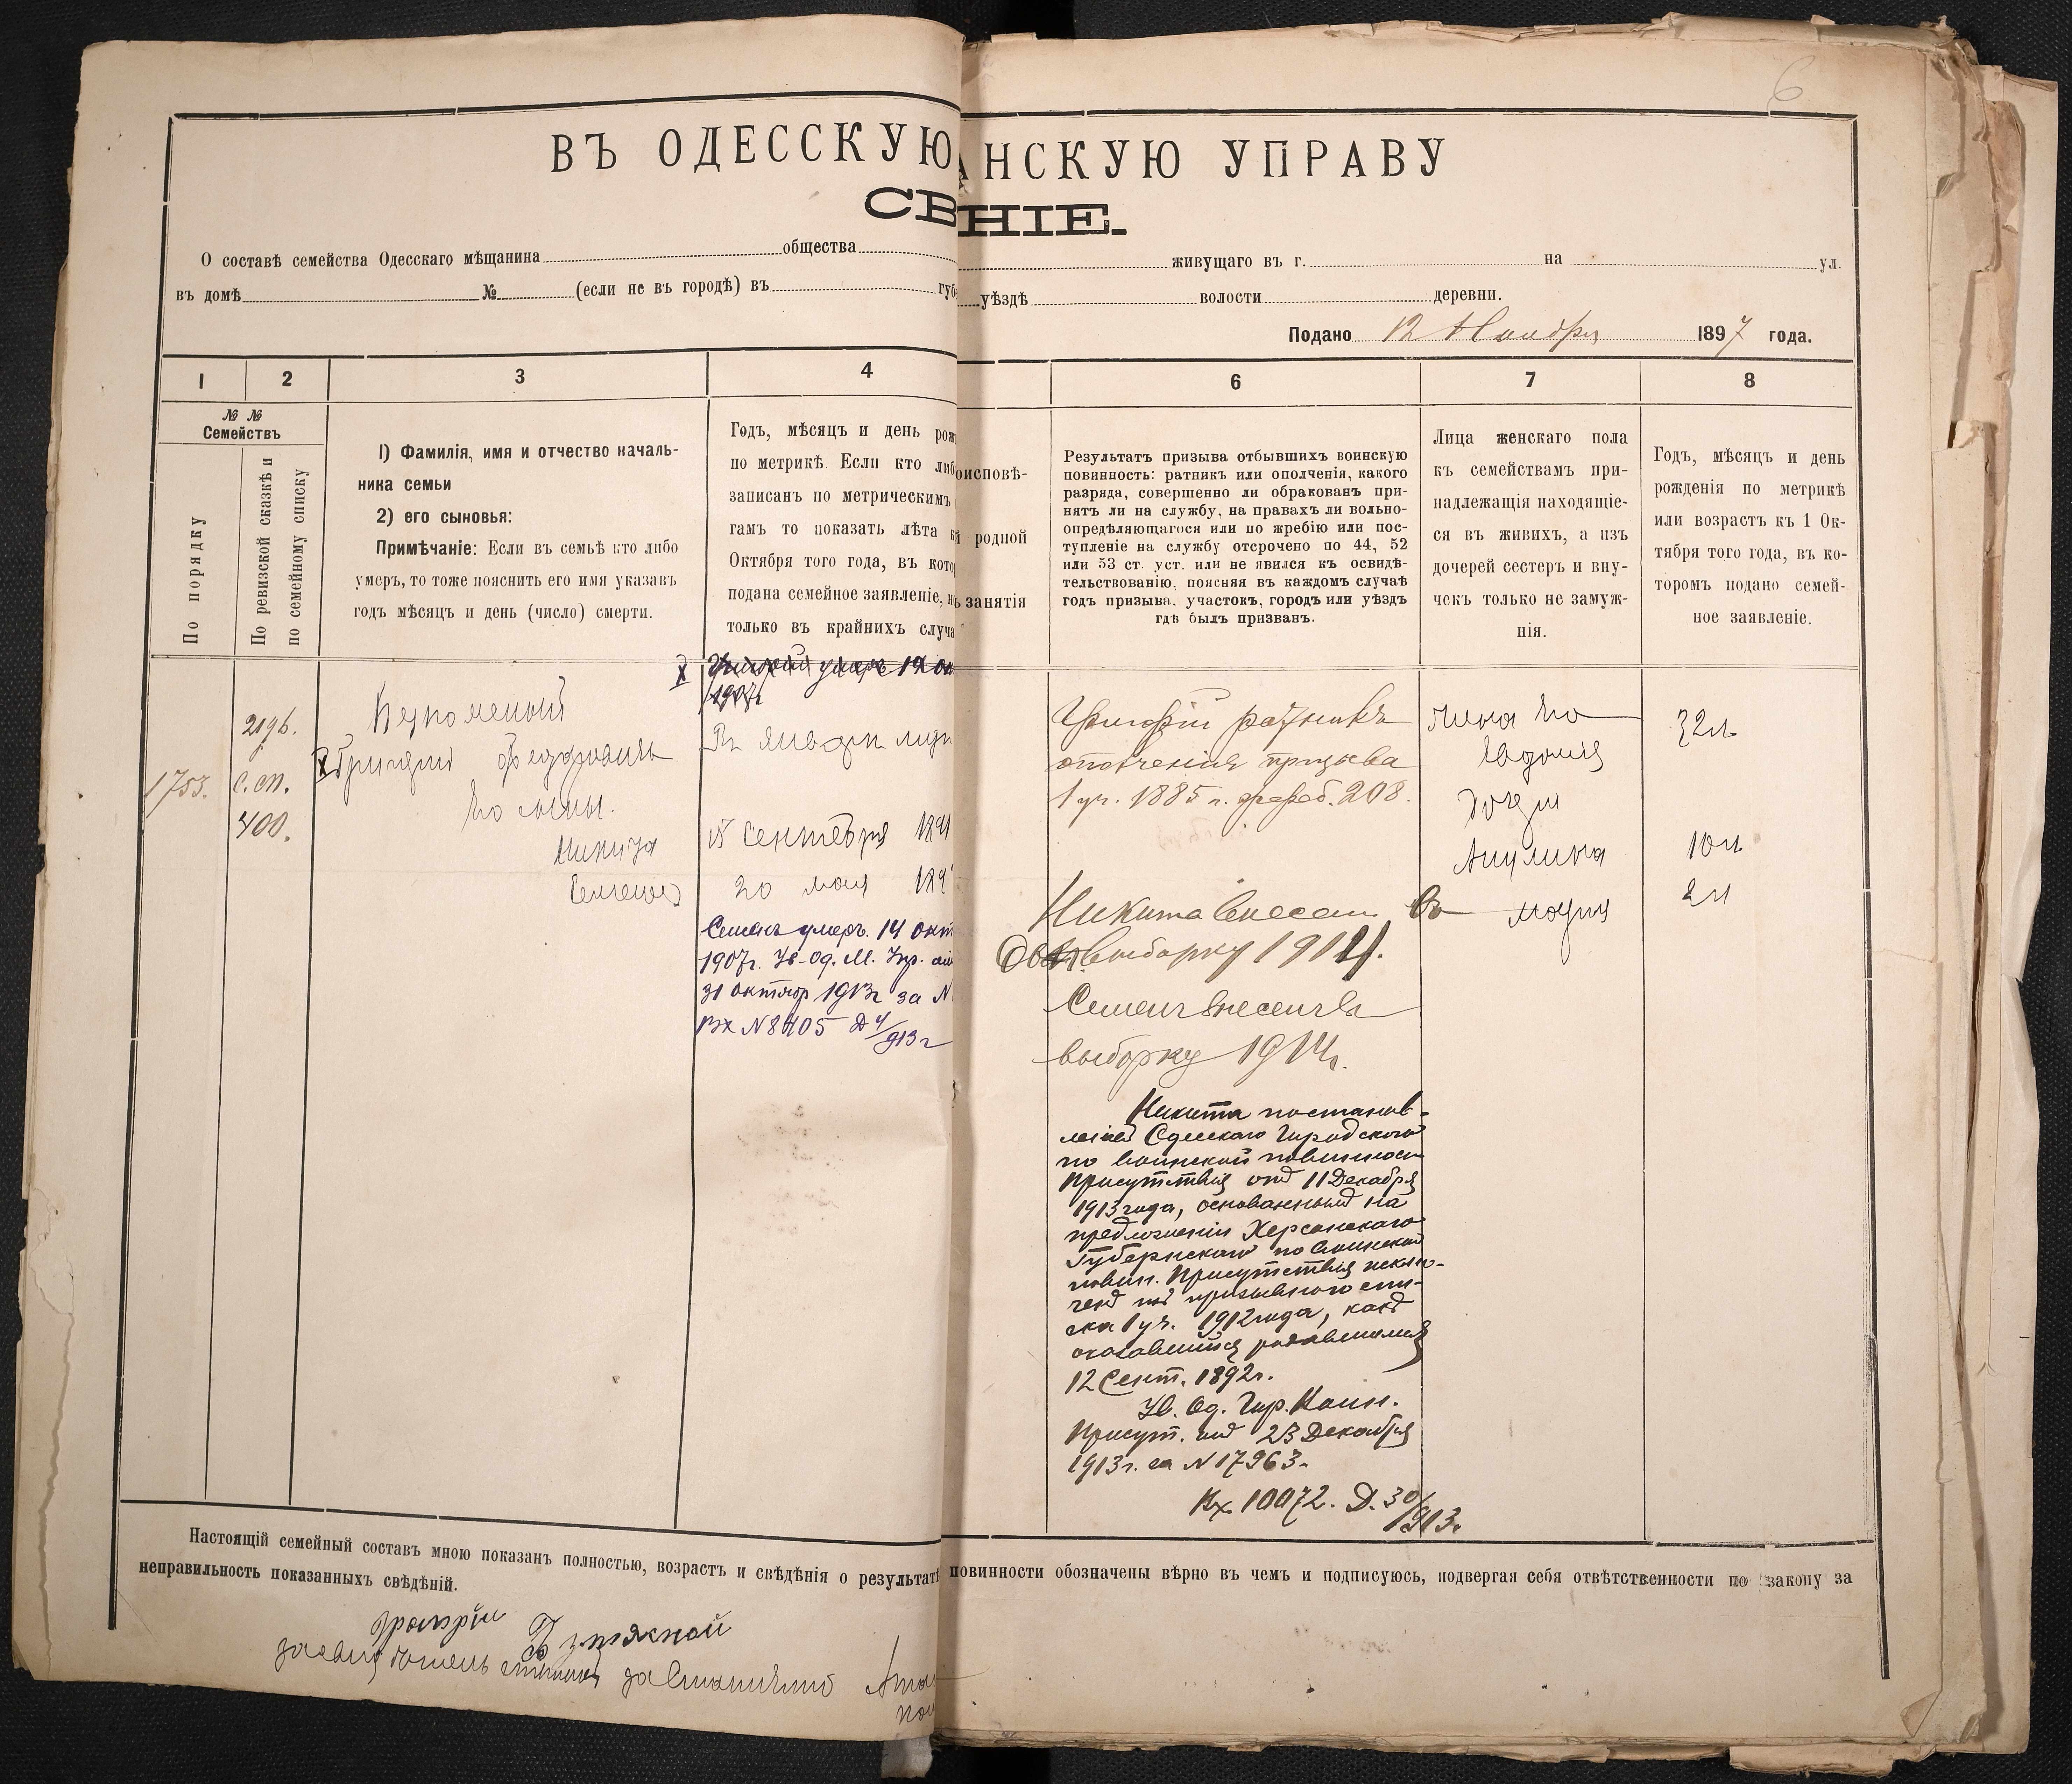 6
ВЪ ОДЕССКУЮ
АНСКУЮ УПРАВУ
СВ
НІЕ.
О составѣ семейства Одесскаго мѣщанина общества
живущаго въ г. на ул.
въ домѣ № (если не въ городѣ) въ губ
уѣздѣ волости деревни.
Подано 12 Ноября 1897 года.
1 2 3 4
6 7 8
№ №
Семействъ
По порядку
По ревизской сказкѣ и
по семейному списку
1) Фамилія, имя и отчество началь-
ника семьи
2) его сыновья:
Примѣчаніе: Если въ семьѣ кто либо
умеръ, то тоже пояснить его имя указавъ
годъ мѣсяцъ и день (число) смерти.
Годъ, мѣсяцъ и день рож
по метрикѣ. Если кто либ
записанъ по метрическимъ
гамъ то показать лѣта к
Октября того года, въ кото
подана семейное заявленіе, н
только въ крайнихъ случа
оисповѣ-
й родной
ъ занятія
Результатъ призыва отбывшихъ воинскую
повинность: ратникъ или ополченія, какого
разряда, совершенно ли обракованъ при-
нятъ ли на службу, на правахъ ли вольно-
опредѣляющагося или по жребію или пос-
тупленіе на службу отсрочено по 44, 52
или 53 ст. уст. или не явился къ освидѣ-
тельствованію, поясняя въ каждомъ случаѣ
годъ призыва, участокъ, городъ или уѣздъ
гдѣ былъ призванъ.
Лица женскаго пола
къ семействамъ при-
надлежащія находящіе-
ся въ живихъ, а изъ
дочерей сестеръ и вну-
чекъ только не замуж-
нія.
Годъ, мѣсяцъ и день
рожденія по метрикѣ
или возрастъ къ 1 Ок-
тября того года, въ ко-
торомъ подано семей-
ное заявленіе.
1753.
2196.
с.сп.
400.
Х Григорій Федоровъ
Его сыны.
Никита
Семенъ
Х Григорій умеръ 14 ок
1907г
15 Сентября 1891
20 мая 189
Семенъ умеръ. 14 окт
1907г. Ув. Од. М. Упр.
31 октяр 1913г за N
Вх N 8405 Д 4/913 г
Григорій ратникъ
ополченія призыва
1 уч. 1885 г. жреб. 208.
Никита внесенъ въ
выборку 1912.
Семенъ внесенъ въ
выборку 1914г.
Никита постанов-
леніемъ Одесскаго Городского
по воинской повинности
Присутствія отъ 11 Декабря
1913 года, основаннымъ на
предложеніи Херсонскаго
Губернскаго по воинской
повин. Присутствія исклю-
ченъ изъ призывного спи-
ска 1 уч. 1912 года, какъ
оказавшійся родившимся
12 Сент. 1892г.
Ув. Од. Гор. Воин.
Присут. отъ 23 Декабря
1913г. за N 17963.
Вх. 10072. Д. 30/913г.
жена его
Евдокия
дочери
Акулина
Мария
32 л
10 л
2 л
Настоящій семейный составъ мною показанъ полностью, возрастъ и свѣдѣнія о результатѣ
повинности обозначены вѣрно въ чемъ и подписуюсь, подвергая себя отвѣтственности по закону за
неправильность показанныхъ свѣдѣній.